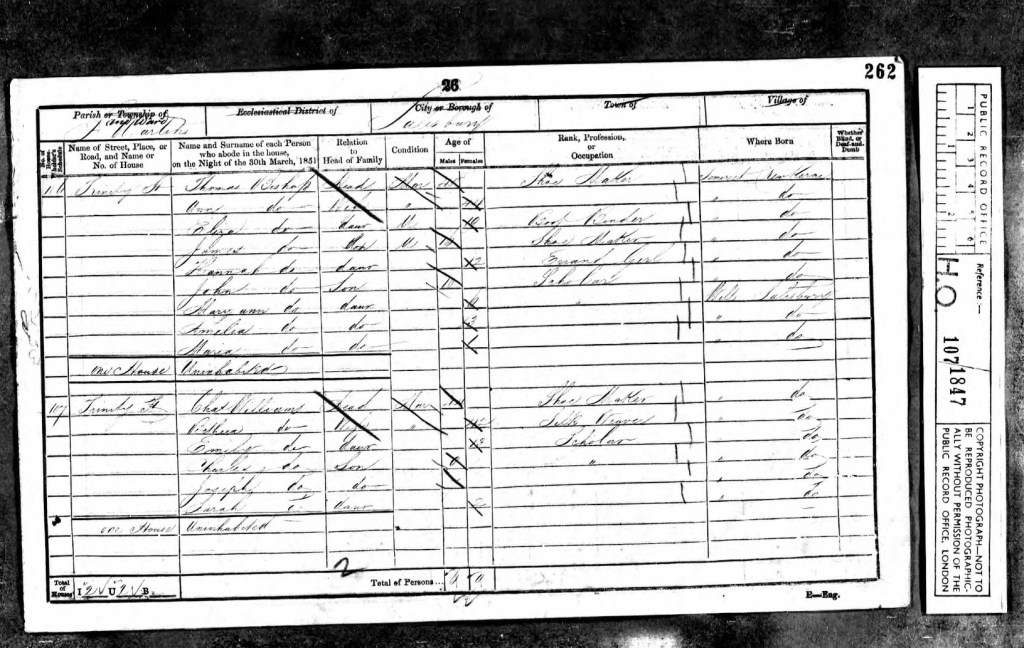 262
26
Parish or Township of
Ecclesiastical District of
City or Borough of
Town of
Village of
Salisbury
Name of Street, Place, or Road, and Name or No. of House
Name and Surname of each Person who abode in the house, on the Night of the 30th March, 1851
Relation to Head of Family
Condition
Age of
Males
Females
Rank, Profession, or Occupation
Where Born
Whether Blind, or Deaf-and-Dumb
Trinity St Thomas Bishop Head Mar Shoe Maker Somerset
Ann do Wife " " do
Eliza do daur U Boot Binder " do
James do Son U Shoe Maker " do
Hannah do daur Errand Girl " do
John do Son Scholar " do
Mary ann do daur Wilts Salisbury
Amelia do do " do
Maria do do " do
one House Uninhabited
107 Trinity St Chas Williams Head Mar Shoe Maker " do
do Wife " Silk " do
Emily do daur Scholar " do
Charles do Son " " do
Joseph do do " do
Sarah daur " do
one House Uninhabited
2
Total of Houses
I 2 U 2 B
Total of Persons...
E—Eng.
PUBLIC RECORD OFFICE
1
2
3
4
5
6
Reference:—
H.O. 107/1847
COPYRIGHT PHOTOGRAPH—NOT TO
BE REPRODUCED PHOTOGRAPHIC-
ALLY WITHOUT PERMISSION OF THE
PUBLIC RECORD OFFICE, LONDON